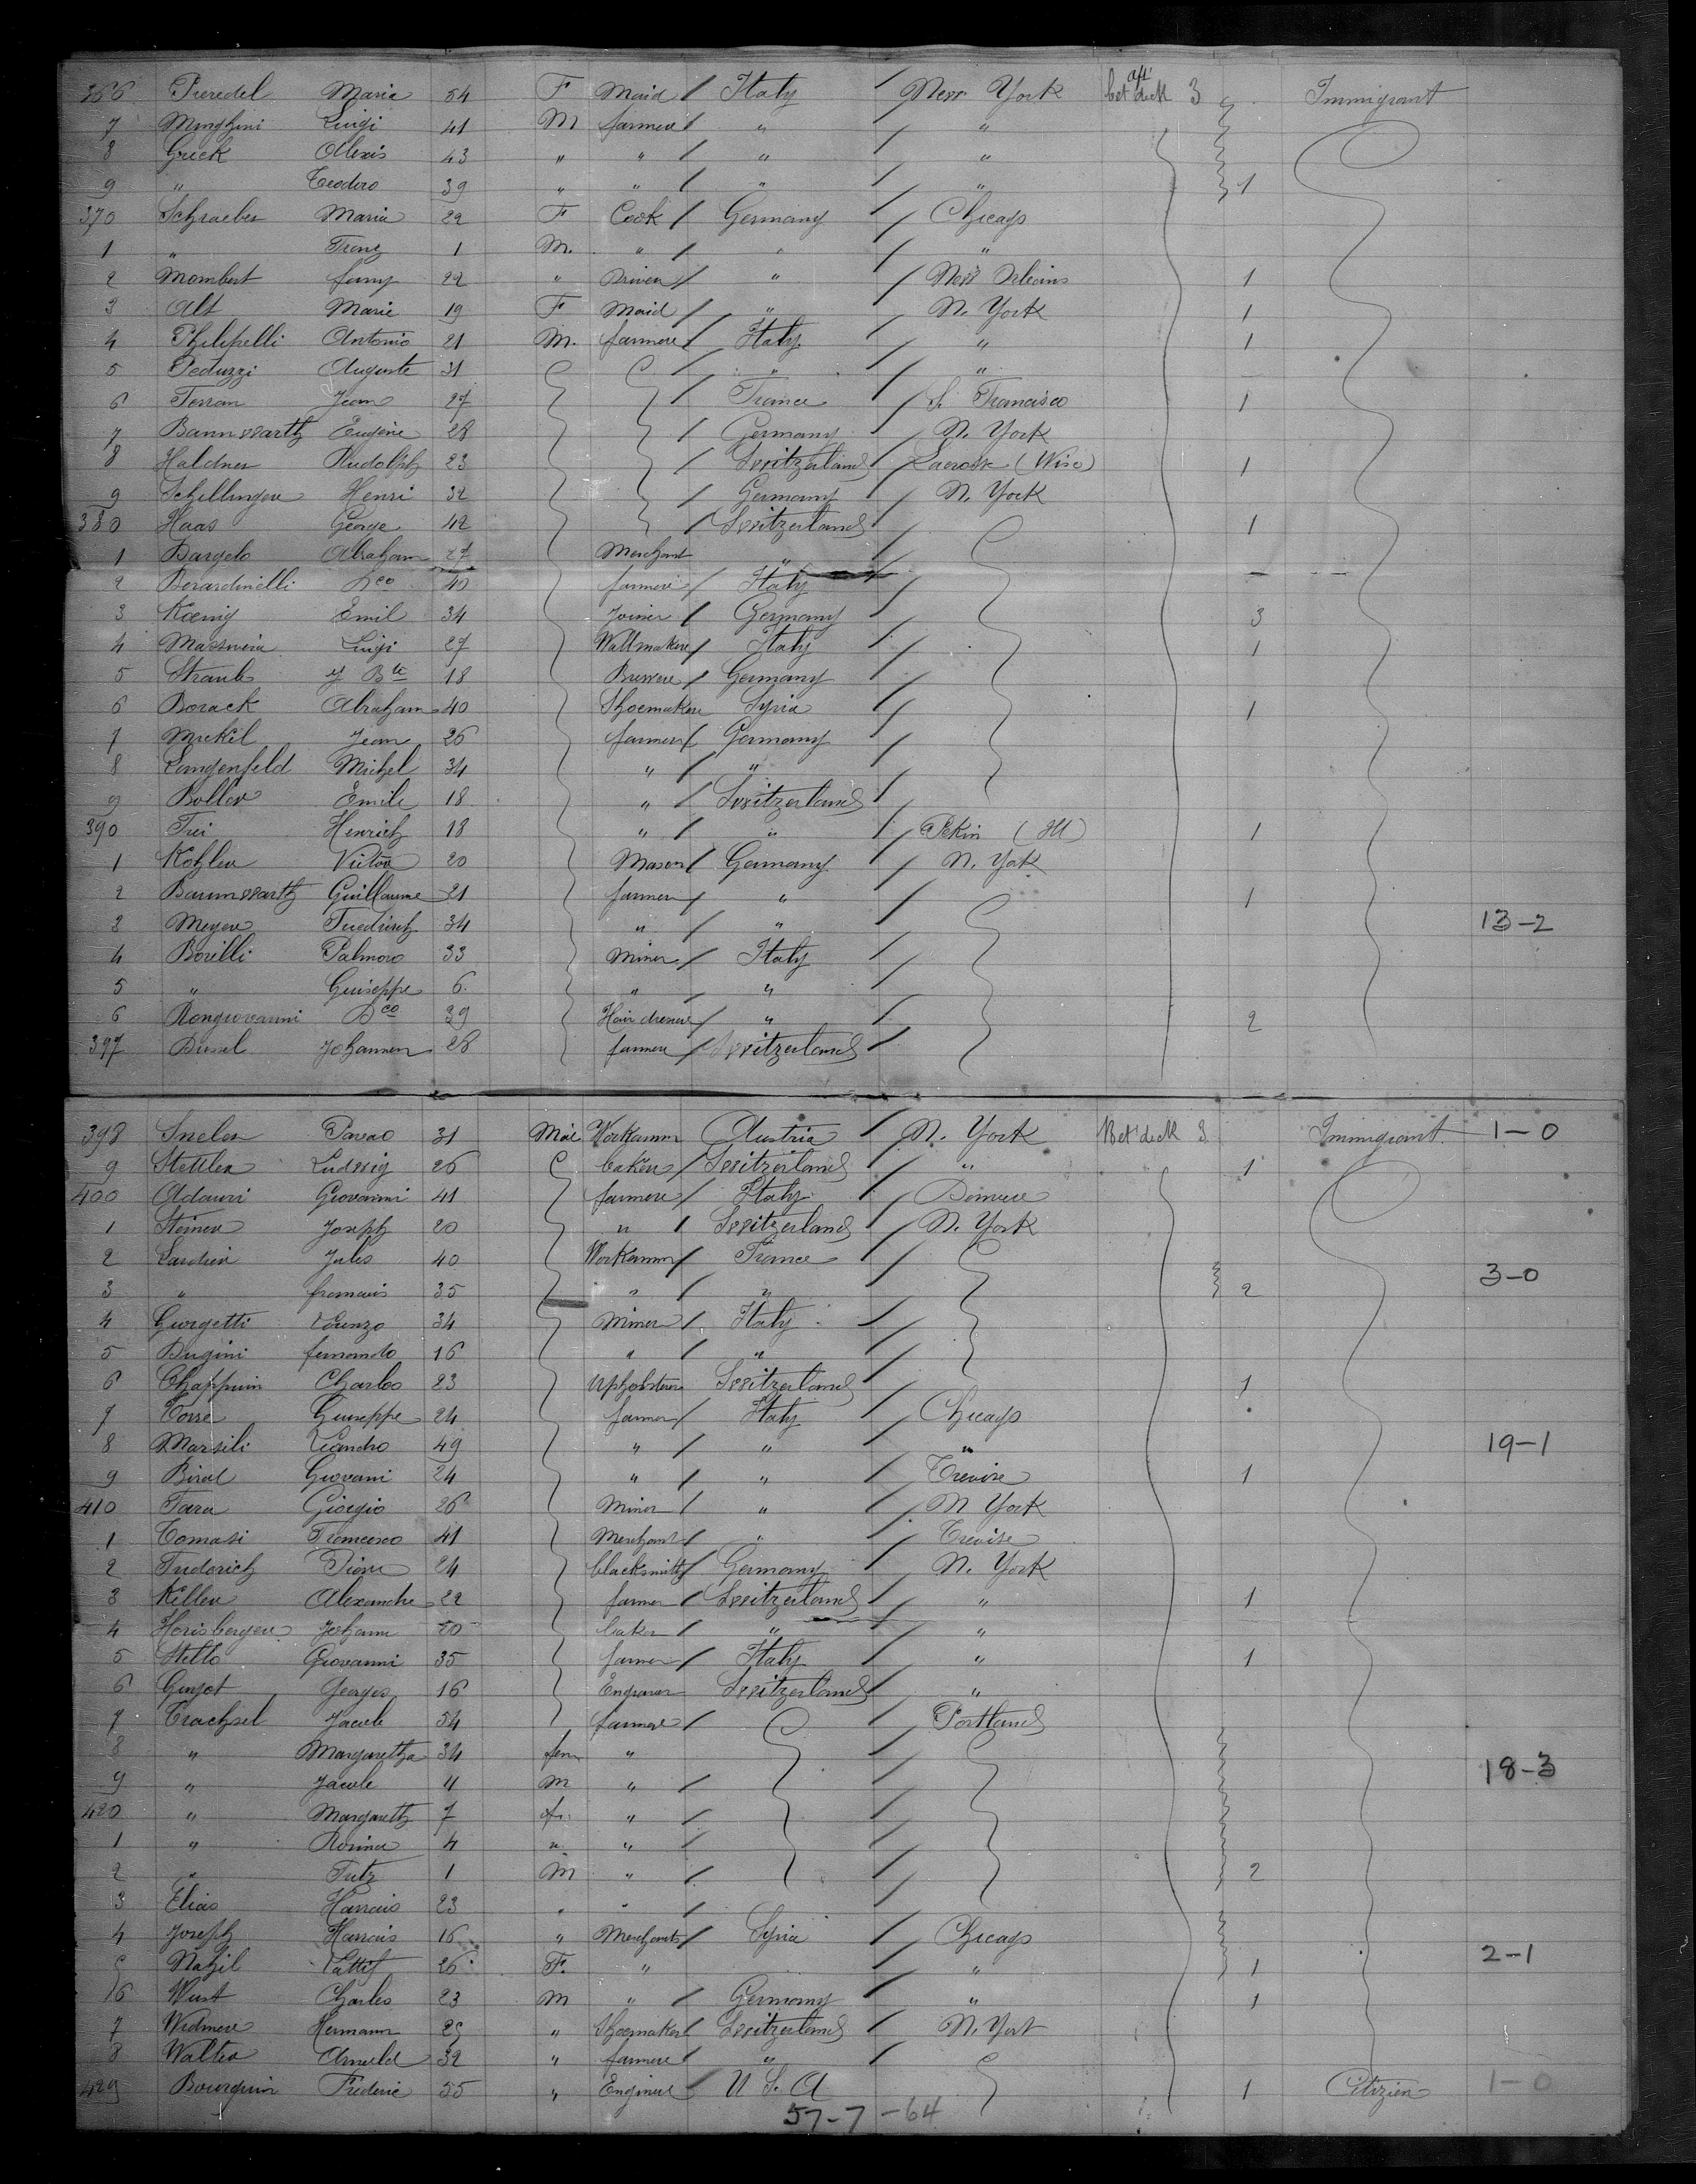 366 Maria 54 F Maid / Italy / New York bet deck aft 3 Immigrant
7 Minghini Luigi 41 M farmer / " / "
8 Grick Alexis 43 " " / " / "
9 " Teodoro 39 " " / " / " 1
370 Schraeber Maria 22 F Cook / Germany / Chicago
1 " Franz 1 M. " / " / "
2 Mombert fanny 22 " Driver / " / New Orleans 1
3 Alt Marie 19 F Maid / " / N. York 1
4 Philipelli Antonio 21 M. farmer / Italy / " 1
5 Peduzzi Auguste 31 / " / "
6 Terran Jean 27 / France / S. Francisco 1
7 Bannwarth Eugène 28 / Germany / N. York
8 Haldner Rudolph 23 / Switzerland / Lacrosse (Wisc) 1
9 Schillinger Henri 32 / Germany / N. York
380 Haas George 42 / Switzerland / 1
1 Bargelo Abraham 27 Merchant " /
2 Berardinelli Dco 40 farmer / Italy /
3 Kœnig Emil 34 Joiner / Germany / 3
4 Luigi 27 Wallmaker / Italy / 1
5 Straub J Bte 18 Brewer / Germany /
6 Borack Abraham 40 Shoemaker Syria / 1
7 Mickil Jean 26 farmer / Germany /
8 Langenfeld Michel 34 " / " /
9 Boller Emile 18 " / Switzerland /
390 Frei Henrich 18 " / " / Pekin (Ill) 1
1 Kohler Victor 20 Mason / Germany / N. York
2 Bannwarth Guillaume 21 farmer / " / 1
3 Meyer Friedrich 34 " / " / 13-2
4 Borilli Palmoro 33 Miner / Italy /
5 " Guiseppe 6 " " /
6 Rongiovanni Dco 39 Hair dresser / " / 2
397 Diesel Johannen 28 farmer / Switzerland /
398 Snelen Pavao 31 Mâle Workamm Austria / N. York Bet deck 3 Immigrant 1-0
9 Stettler Ludwig 26 baker / Switzerland / " 1
400 Adauri Giovanni 41 farmer / Italy / Denver
1 Steiner Joseph 20 " / Switzerland / N. York
2 Lardier Jules 40 Workamm / France /
3 " francois 35 " " / 2 3-0
4 Giorgetti Lorenzo 34 Miner / Italy /
5 Bugini fernando 16 " / " /
6 Chappuin Charles 23 Upholsterer Switzerland / 1
7 Torre Giuseppe 24 farmer / Italy / Chicago
8 Marsili Leandro 49 " / " / " 19-1
9 Biral Giovani 24 " / " / Trevise 1
410 Fara Giorgio 26 Miner / " / N York
1 Tomasi Francesco 41 Merchant / " / Trevise
2 Friderich Pierre 24 blacksmith / Germany / N. York
3 Keller Alexandre 22 farmer / Switzerland / " 1
4 Horisberger Johann 20 baker / " / "
5 Stello Giovanni 35 farmer / Italy / " 1
6 Guyot Georges 16 Engraver Switzerland / "
7 Trachsel Jacob 54 farmer / / Portland
8 " Margaretha 34 fem " /
9 " Jacob 11 m " / / 18-3
420 " Margareth 7 f. " / /
1 " Rosina 4 " " / /
2 " Fritz 1 m " / / 2
3 Elias Harrais 23 " " / /
4 Joseph Harrais 16 " Merchants / Syria / Chicago
5 Nahil Lattif 26 F. " / " 1 2-1
6 Wust Charles 23 m " / Germany / " 1
7 Widmer Hermann " Shoemaker / Switzerland / N. York
8 Walter Arnold 32 " farmer / " /
429 Bourquin Frederic 55 " Engineer / U S. A 1 Citizien 1-0
57-7-64